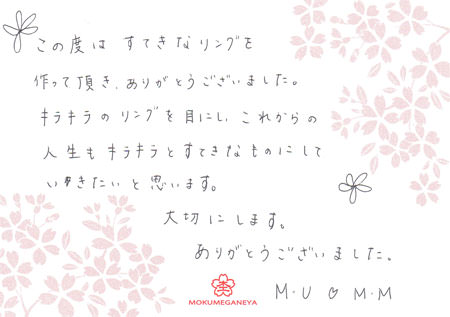 この度は すてきなリングを
作って頂き、ありがとうございました。
キラキラのリングを目にし、これからの
人生もキラキラとすてきなものにして
いきたいと思います。
大切にします。
ありがとうございました。
MOKUMEGANEYA
M・U ♡ M・M